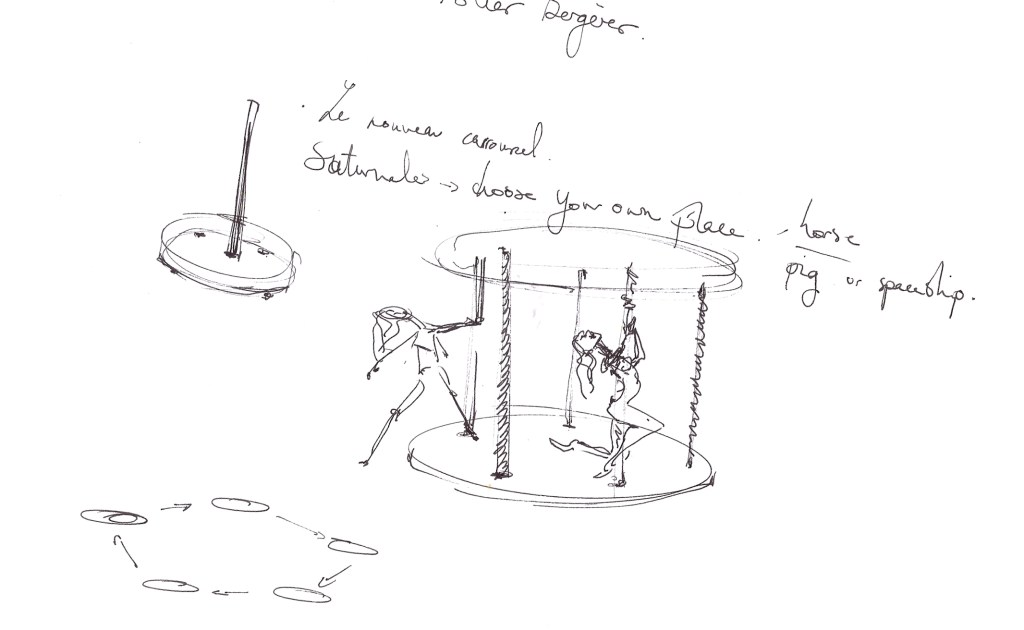 Bergères.
· Le nouveau carrousel.
Saturnales → choose your own place. - horse
pig or spaceship.